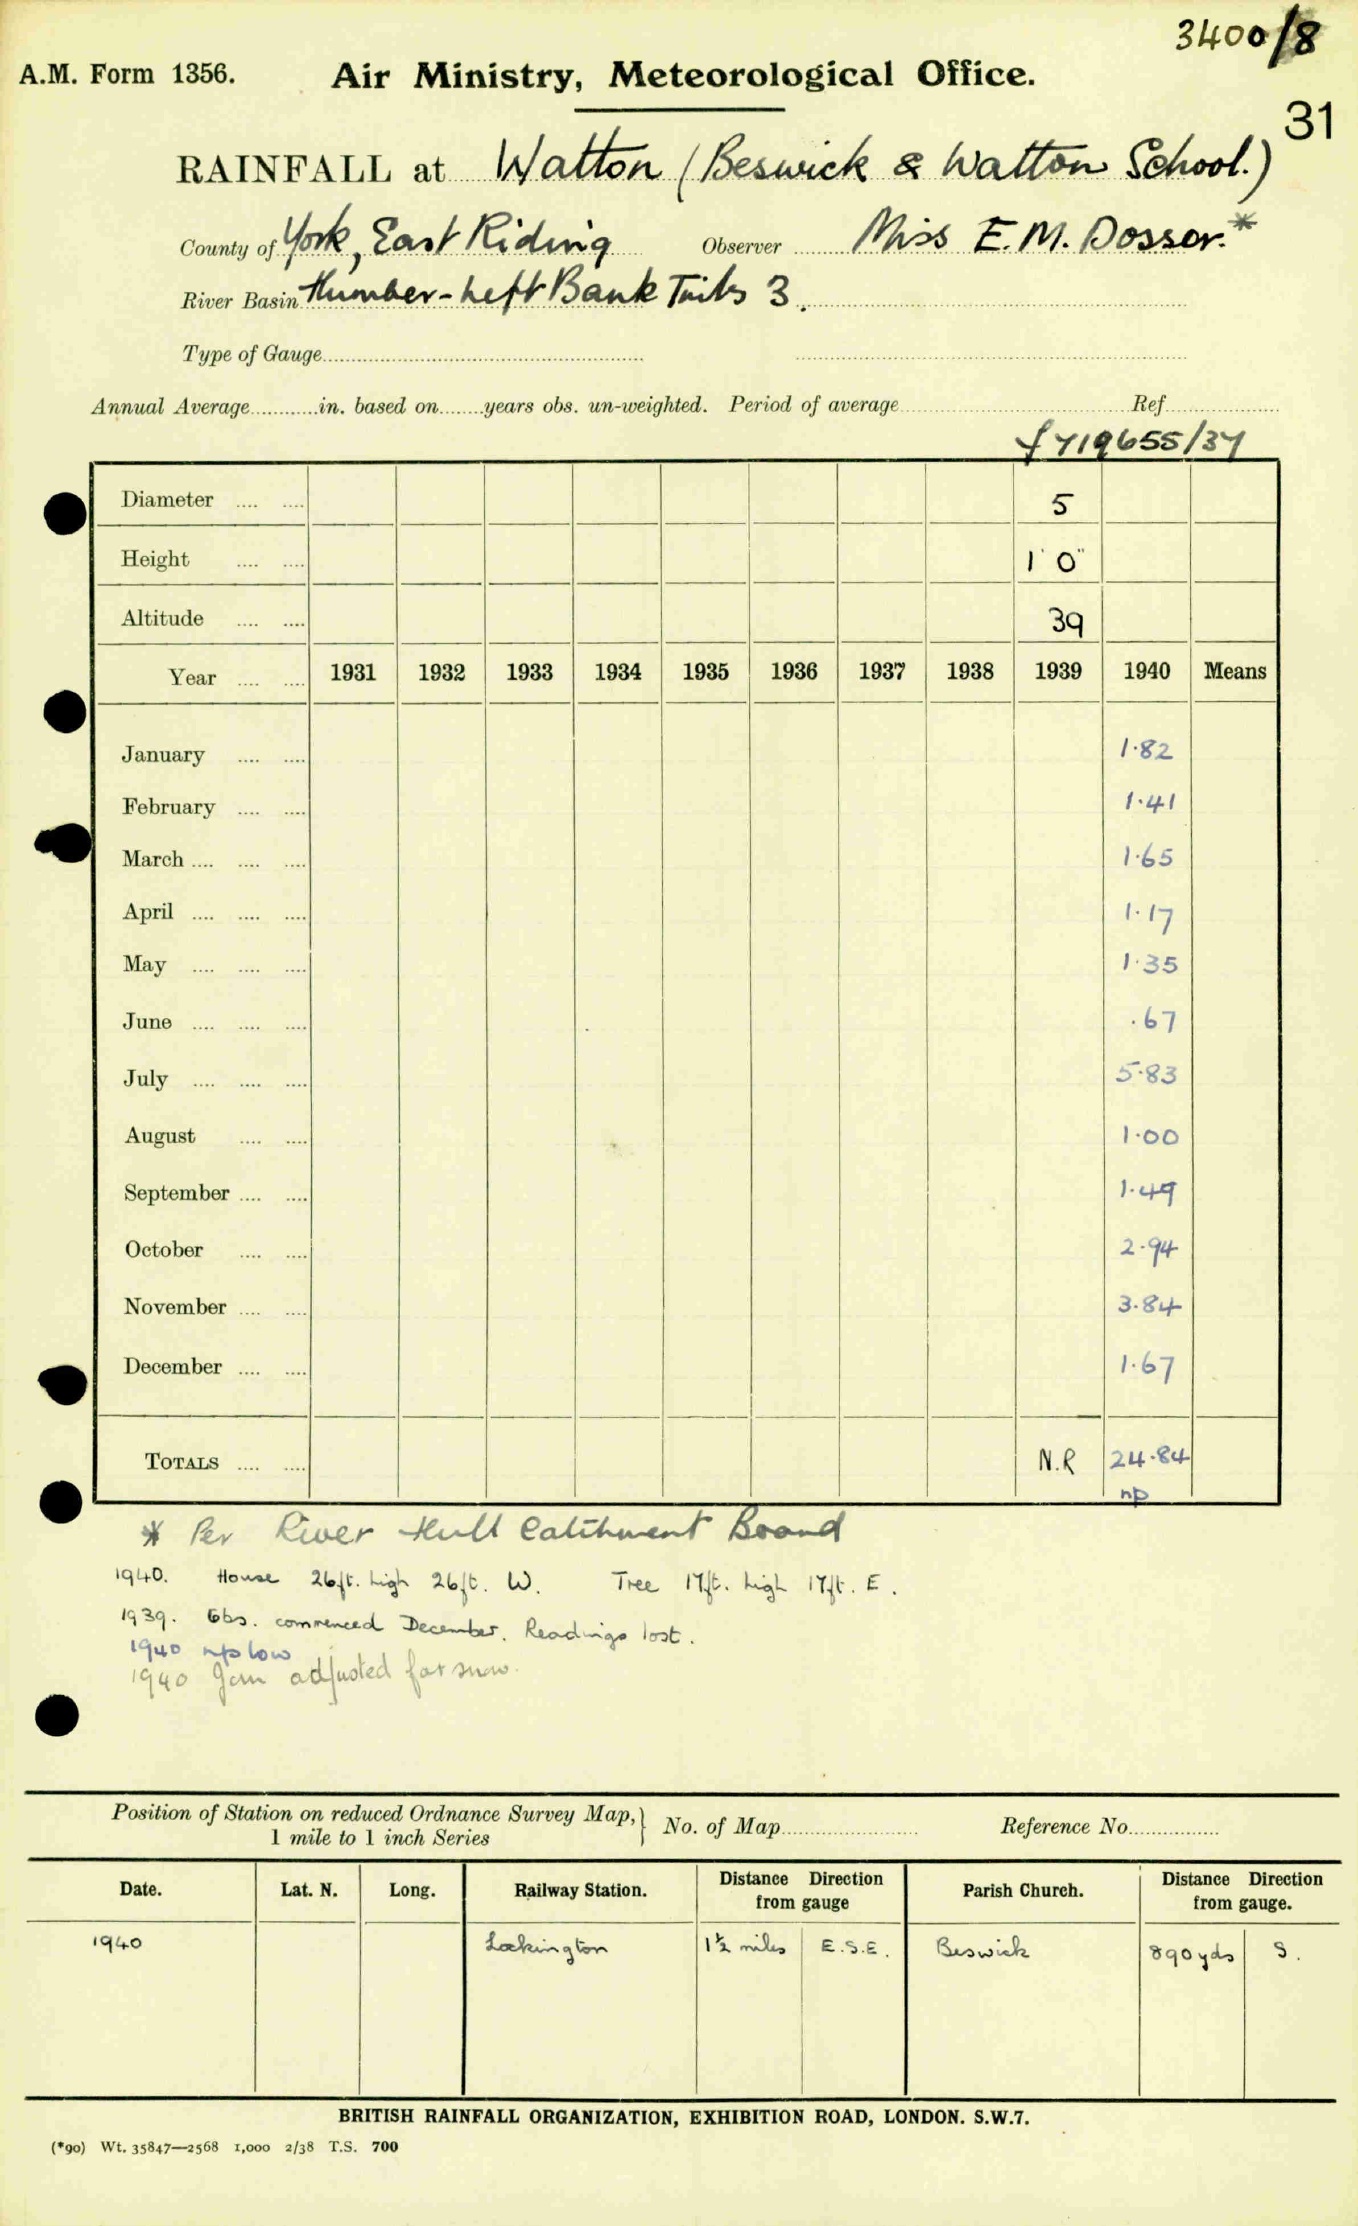 3400/8
A.M. Form 1356. Air Ministry, Meteorological Office.
31
RAINFALL at Watton (Beswick & Watton School.)
County of York, East Riding Observer Miss E. M. Dosser.*
River Basin Humber - Left Bank Tribs 3.
Type of Gauge
Annual Average in. based on years obs. un-weighted. Period of average Ref
719655/37
Diameter .... .... 5
Height .... .... 1' 0"
Altitude .... .... 39
Year .... .... 1931 1932 1933 1934 1935 1936 1937 1938 1939 1940 Means
January .... .... 1·82
February .... .... 1·41
March .... .... .... 1·65
April .... .... .... 1·17
May .... .... .... 1·35
June .... .... .... ·67
July .... .... .... 5·83
August .... .... 1·00
September .... .... 1·49
October .... .... 2·94
November .... .... 3·84
December .... .... 1·67
TOTALS .... .... N.R 24·84
np
* Per River Hull Catchment Board
1940. House 26ft. high 26ft. W. Tree 17ft. high 17ft. E.
1939. Obs. commenced December. Readings lost.
1940 np low
1940 Jan adjusted for snow.
Position of Station on reduced Ordnance Survey Map, } No. of Map Reference No.
1 mile to 1 inch Series
Date. Lat. N. Long. Railway Station. Distance Direction from gauge Parish Church. Distance Direction from gauge.
1940 Lockington 1½ miles E.S.E. Beswick 890 yds S.
BRITISH RAINFALL ORGANIZATION, EXHIBITION ROAD, LONDON. S.W.7.
(*90) Wt. 35847—2568 1,000 2/38 T.S. 700